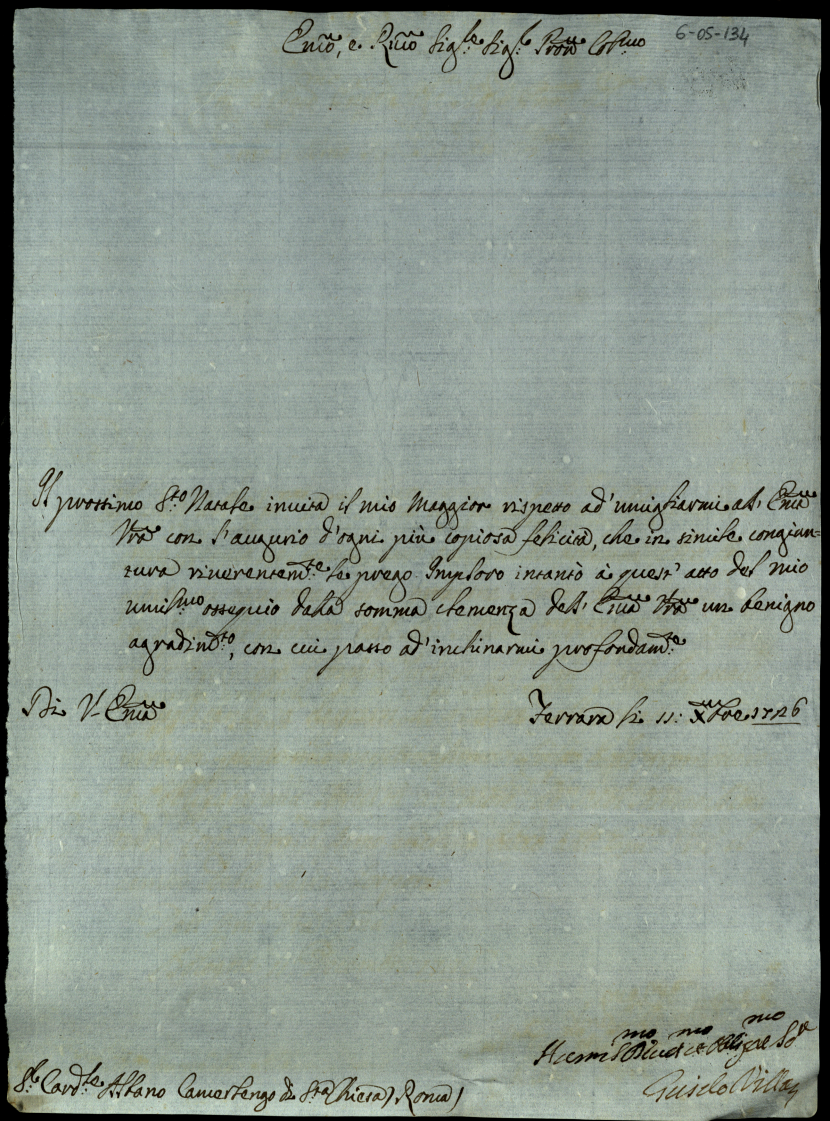 6-05-134
Em̃o, e Rm̃o Sig.re Sig.r Prõn Col.mo
Il prossimo S.to Natale invita il mio maggior rispetto ad' umigliarmi all' Em̃a
Vrã con l'augurio d'ogni più copiosa felicità, che in simile congiun=
tura riverentem.te le prego. Imploro intanto à quest' atto del mio
umil.mo ossequio dalla somma clemenza dell' Em̃a Vrã un benigno
agradim.to, con cui passo ad' inchinarmi profondam.te
Di V. Em̃a
Ferrara li 11: Xbre 1726
Hummo Devmo et Obligmo Se
Guido Villa
S.r Card.le Albano Camerlengo di S.ta Chiesa / Roma /